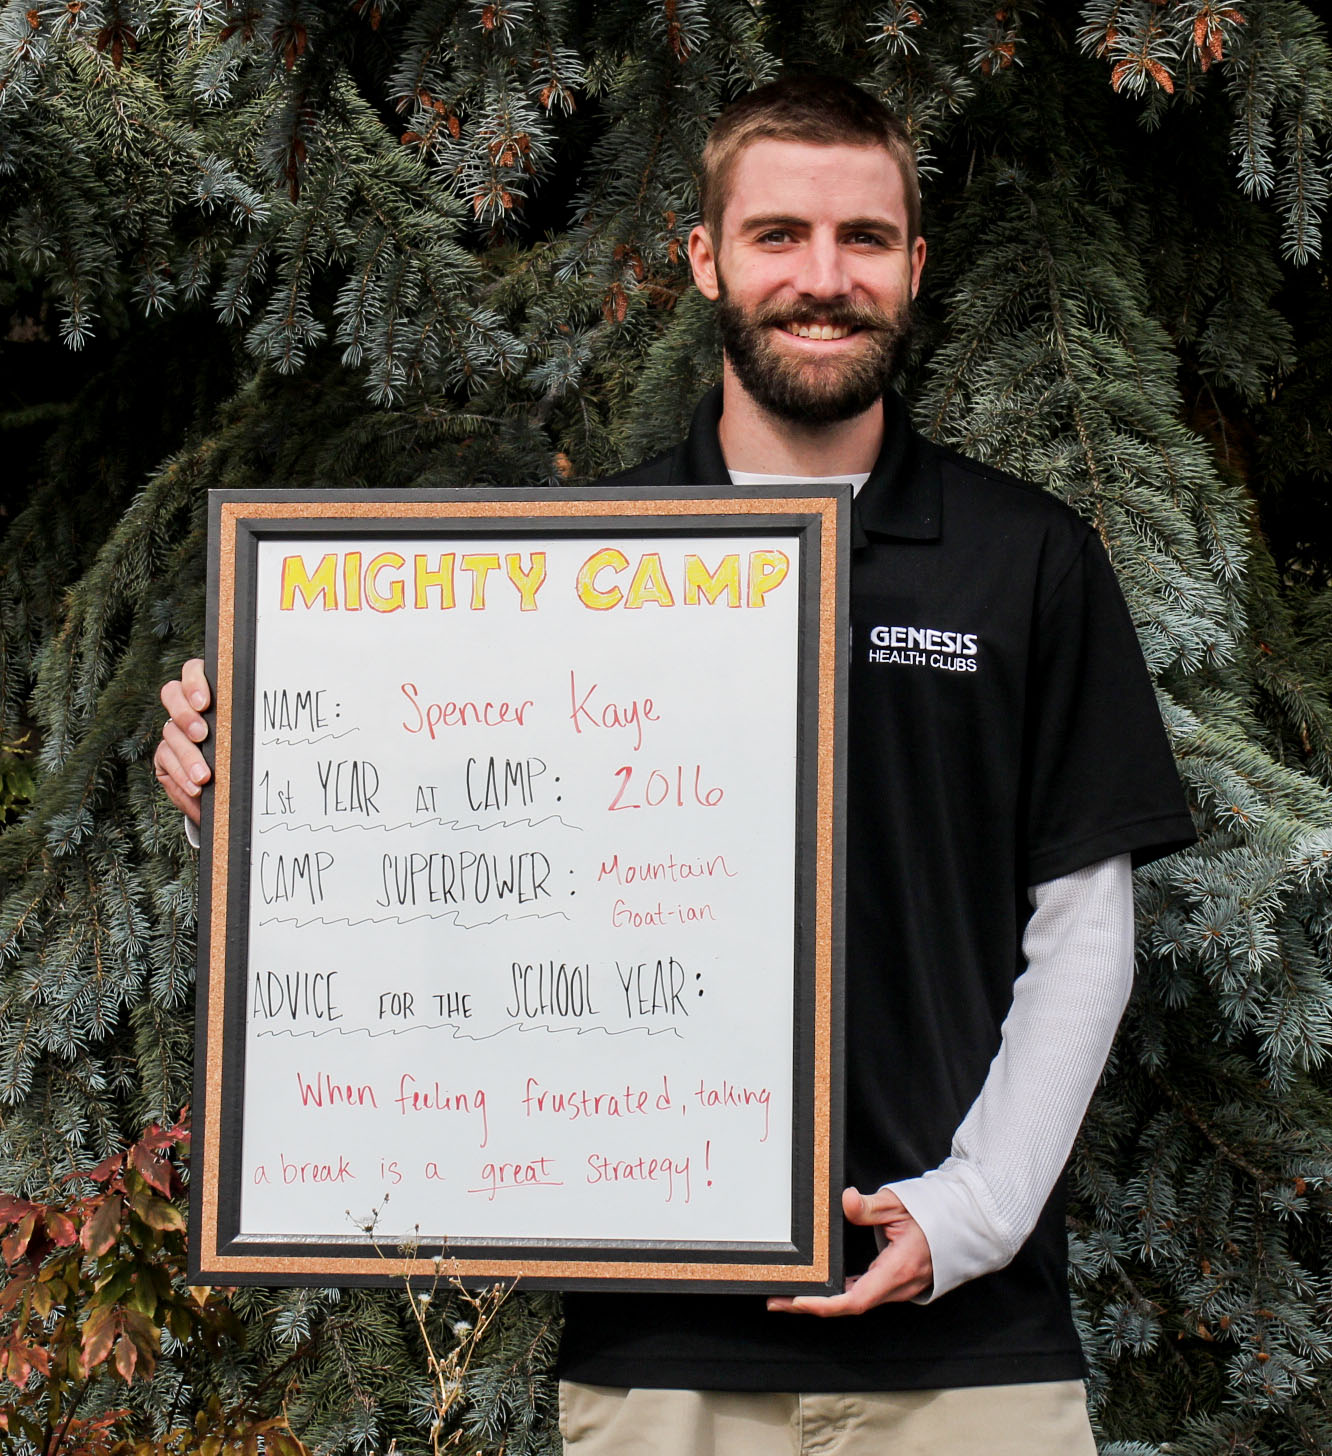 MIGHTY CAMP
NAME: Spencer Kaye
1st YEAR AT CAMP: 2016
CAMP SUPERPOWER: Mountain
Goat-ian
ADVICE FOR THE SCHOOL YEAR:
When feeling frustrated, taking
a break is a great strategy!
GENESIS
HEALTH CLUBS